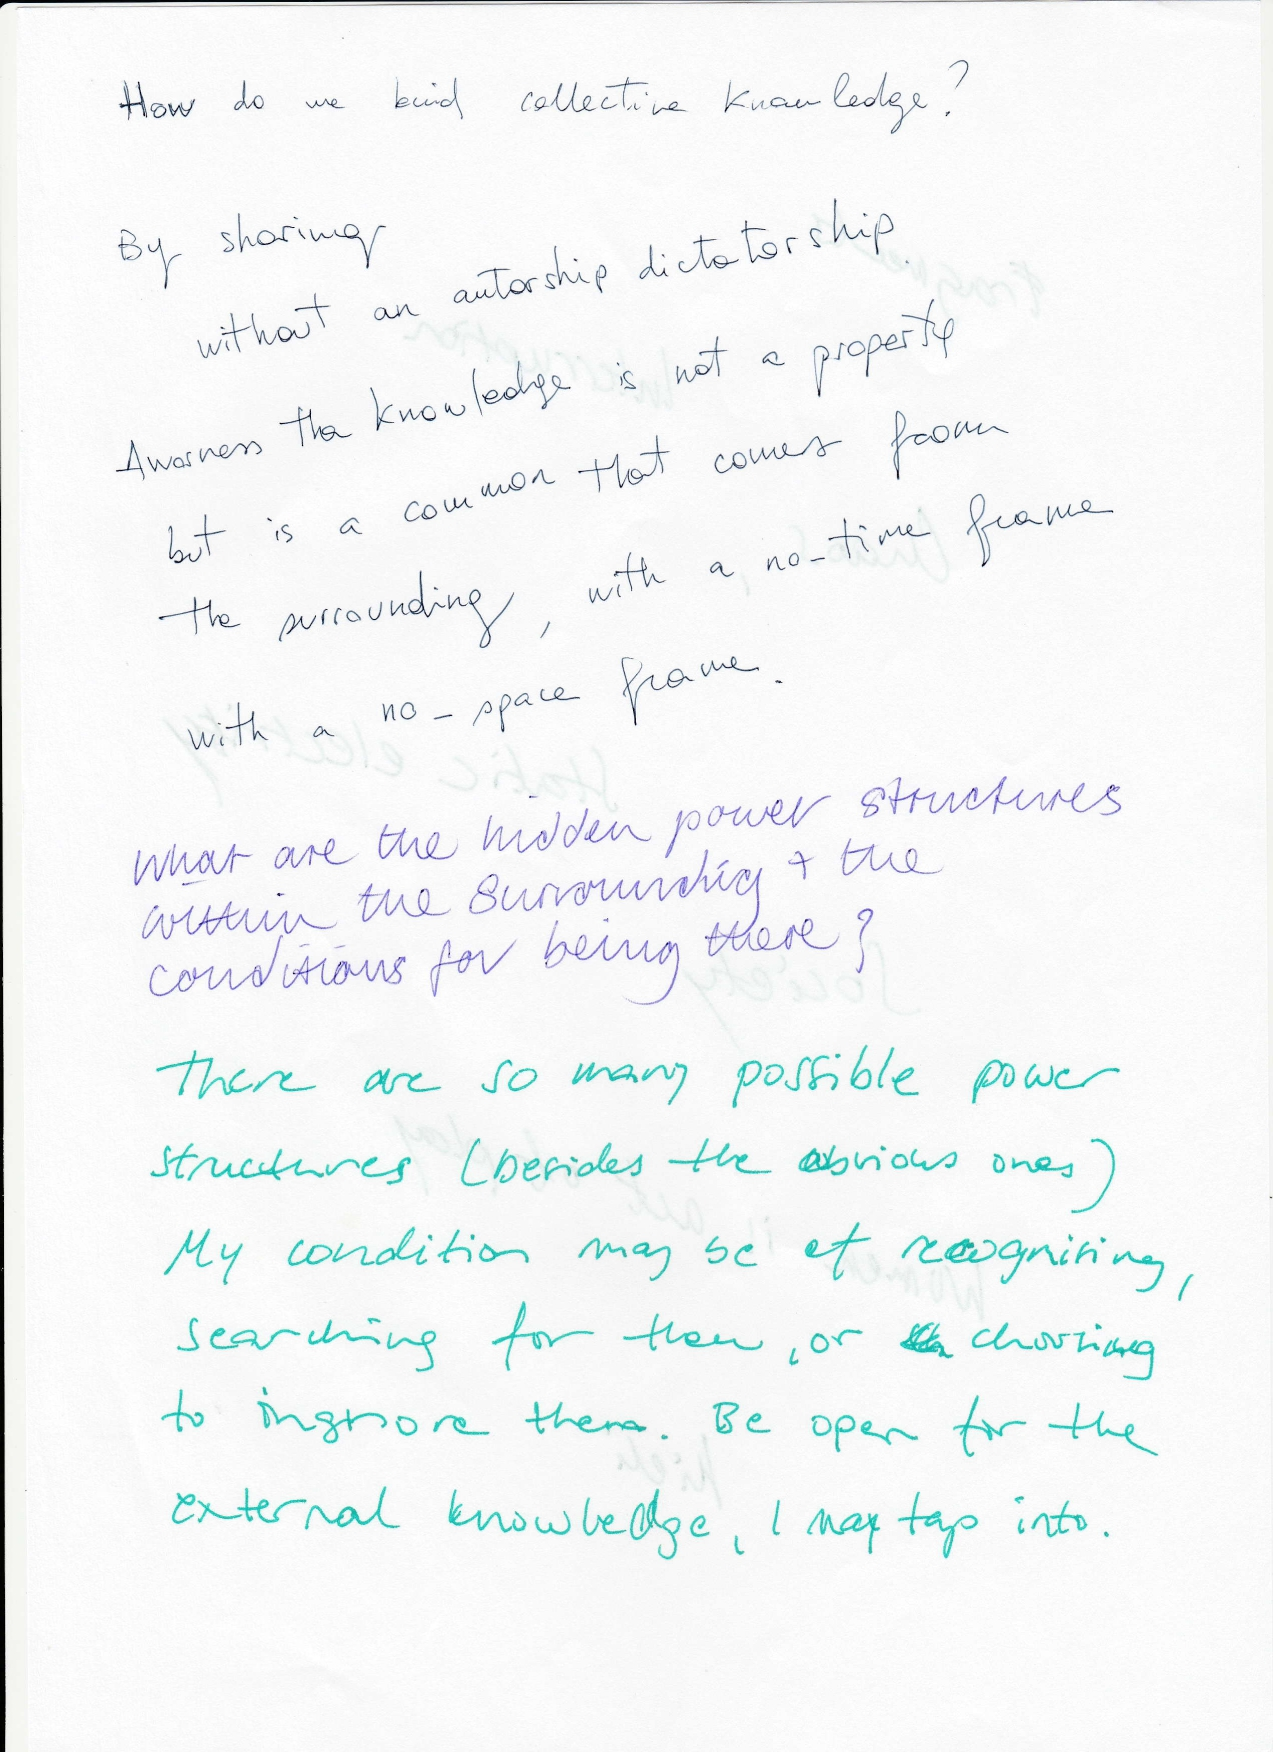 How do we buid collective knowledge?
By sharing
without an autorship dictatorship.
Awarness tha knowledge is not a property
but is a common that comes from
the surrounding, with a no-time frame
with a no-space frame.
What are the hidden power structures
within the surrounding + the
conditions for being there?
There are so many possible power
structures (besides the obvious ones)
My condition may be of recognising,
searching for them, or choosing
to ingnore them. Be open for the
external knowledge, I may tap into.